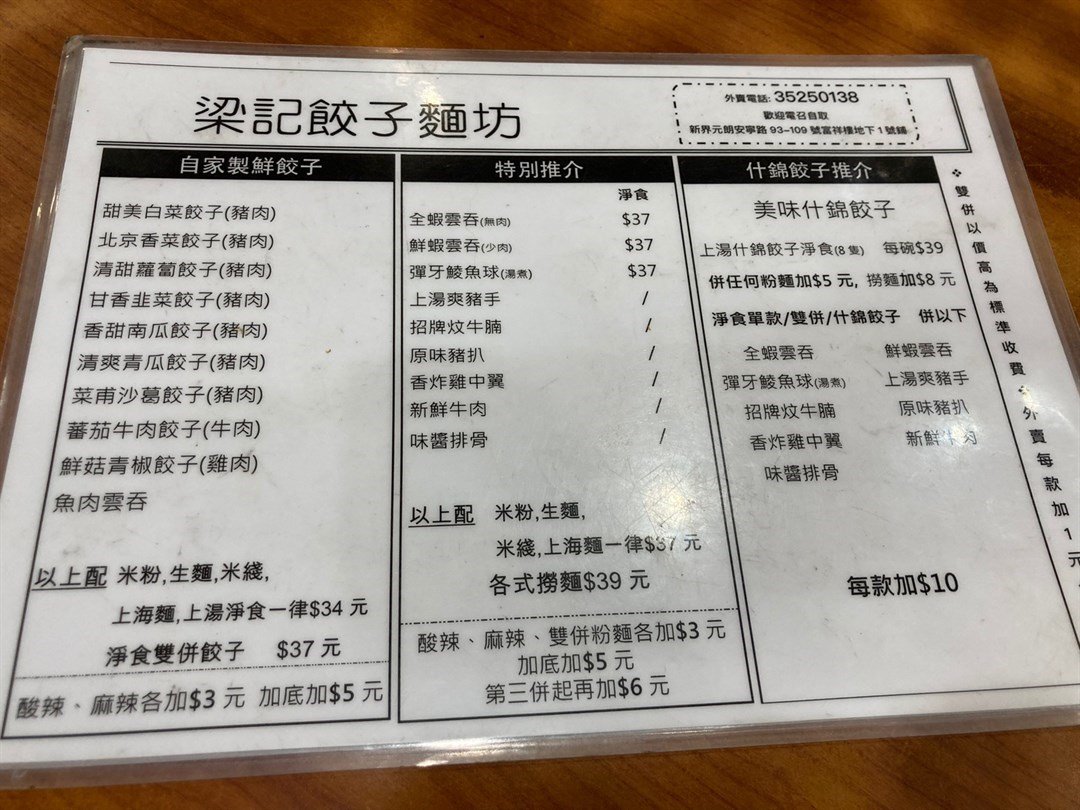 梁記餃子麵坊
外賣電話: 35250138
歡迎電召自取
新界元朗安寧路 93-109 號富祥樓地下 1 號鋪
自家製鮮餃子
甜美白菜餃子(豬肉)
北京香菜餃子(豬肉)
清甜蘿蔔餃子(豬肉)
甘香韭菜餃子(豬肉)
香甜南瓜餃子(豬肉)
清爽青瓜餃子(豬肉)
菜甫沙葛餃子(豬肉)
蕃茄牛肉餃子(牛肉)
鮮菇青椒餃子(雞肉)
魚肉雲吞
以上配 米粉,生麵,米綫,
上海麵,上湯淨食一律$34 元
淨食雙併餃子 $37 元
酸辣、麻辣各加$3 元 加底加$5 元
特別推介
淨食
全蝦雲吞(無肉) $37
鮮蝦雲吞(少肉) $37
彈牙鯪魚球(湯煮) $37
上湯爽豬手 /
招牌炆牛腩 /
原味豬扒 /
香炸雞中翼 /
新鮮牛肉 /
味醬排骨 /
以上配 米粉,生麵,
米綫,上海麵一律$37 元
各式撈麵$39 元
酸辣、麻辣、雙併粉麵各加$3 元
加底加$5 元
第三併起再加$6 元
什錦餃子推介
美味什錦餃子
上湯什錦餃子淨食(8 隻) 每碗$39
併任何粉麵加$5 元, 撈麵加$8 元
淨食單款/雙併/什錦餃子 併以下
全蝦雲吞 鮮蝦雲吞
彈牙鯪魚球(湯煮) 上湯爽豬手
招牌炆牛腩 原味豬扒
香炸雞中翼 新鮮牛肉
味醬排骨
每款加$10
❖雙併以價高為標準收費❖外賣每款加1元